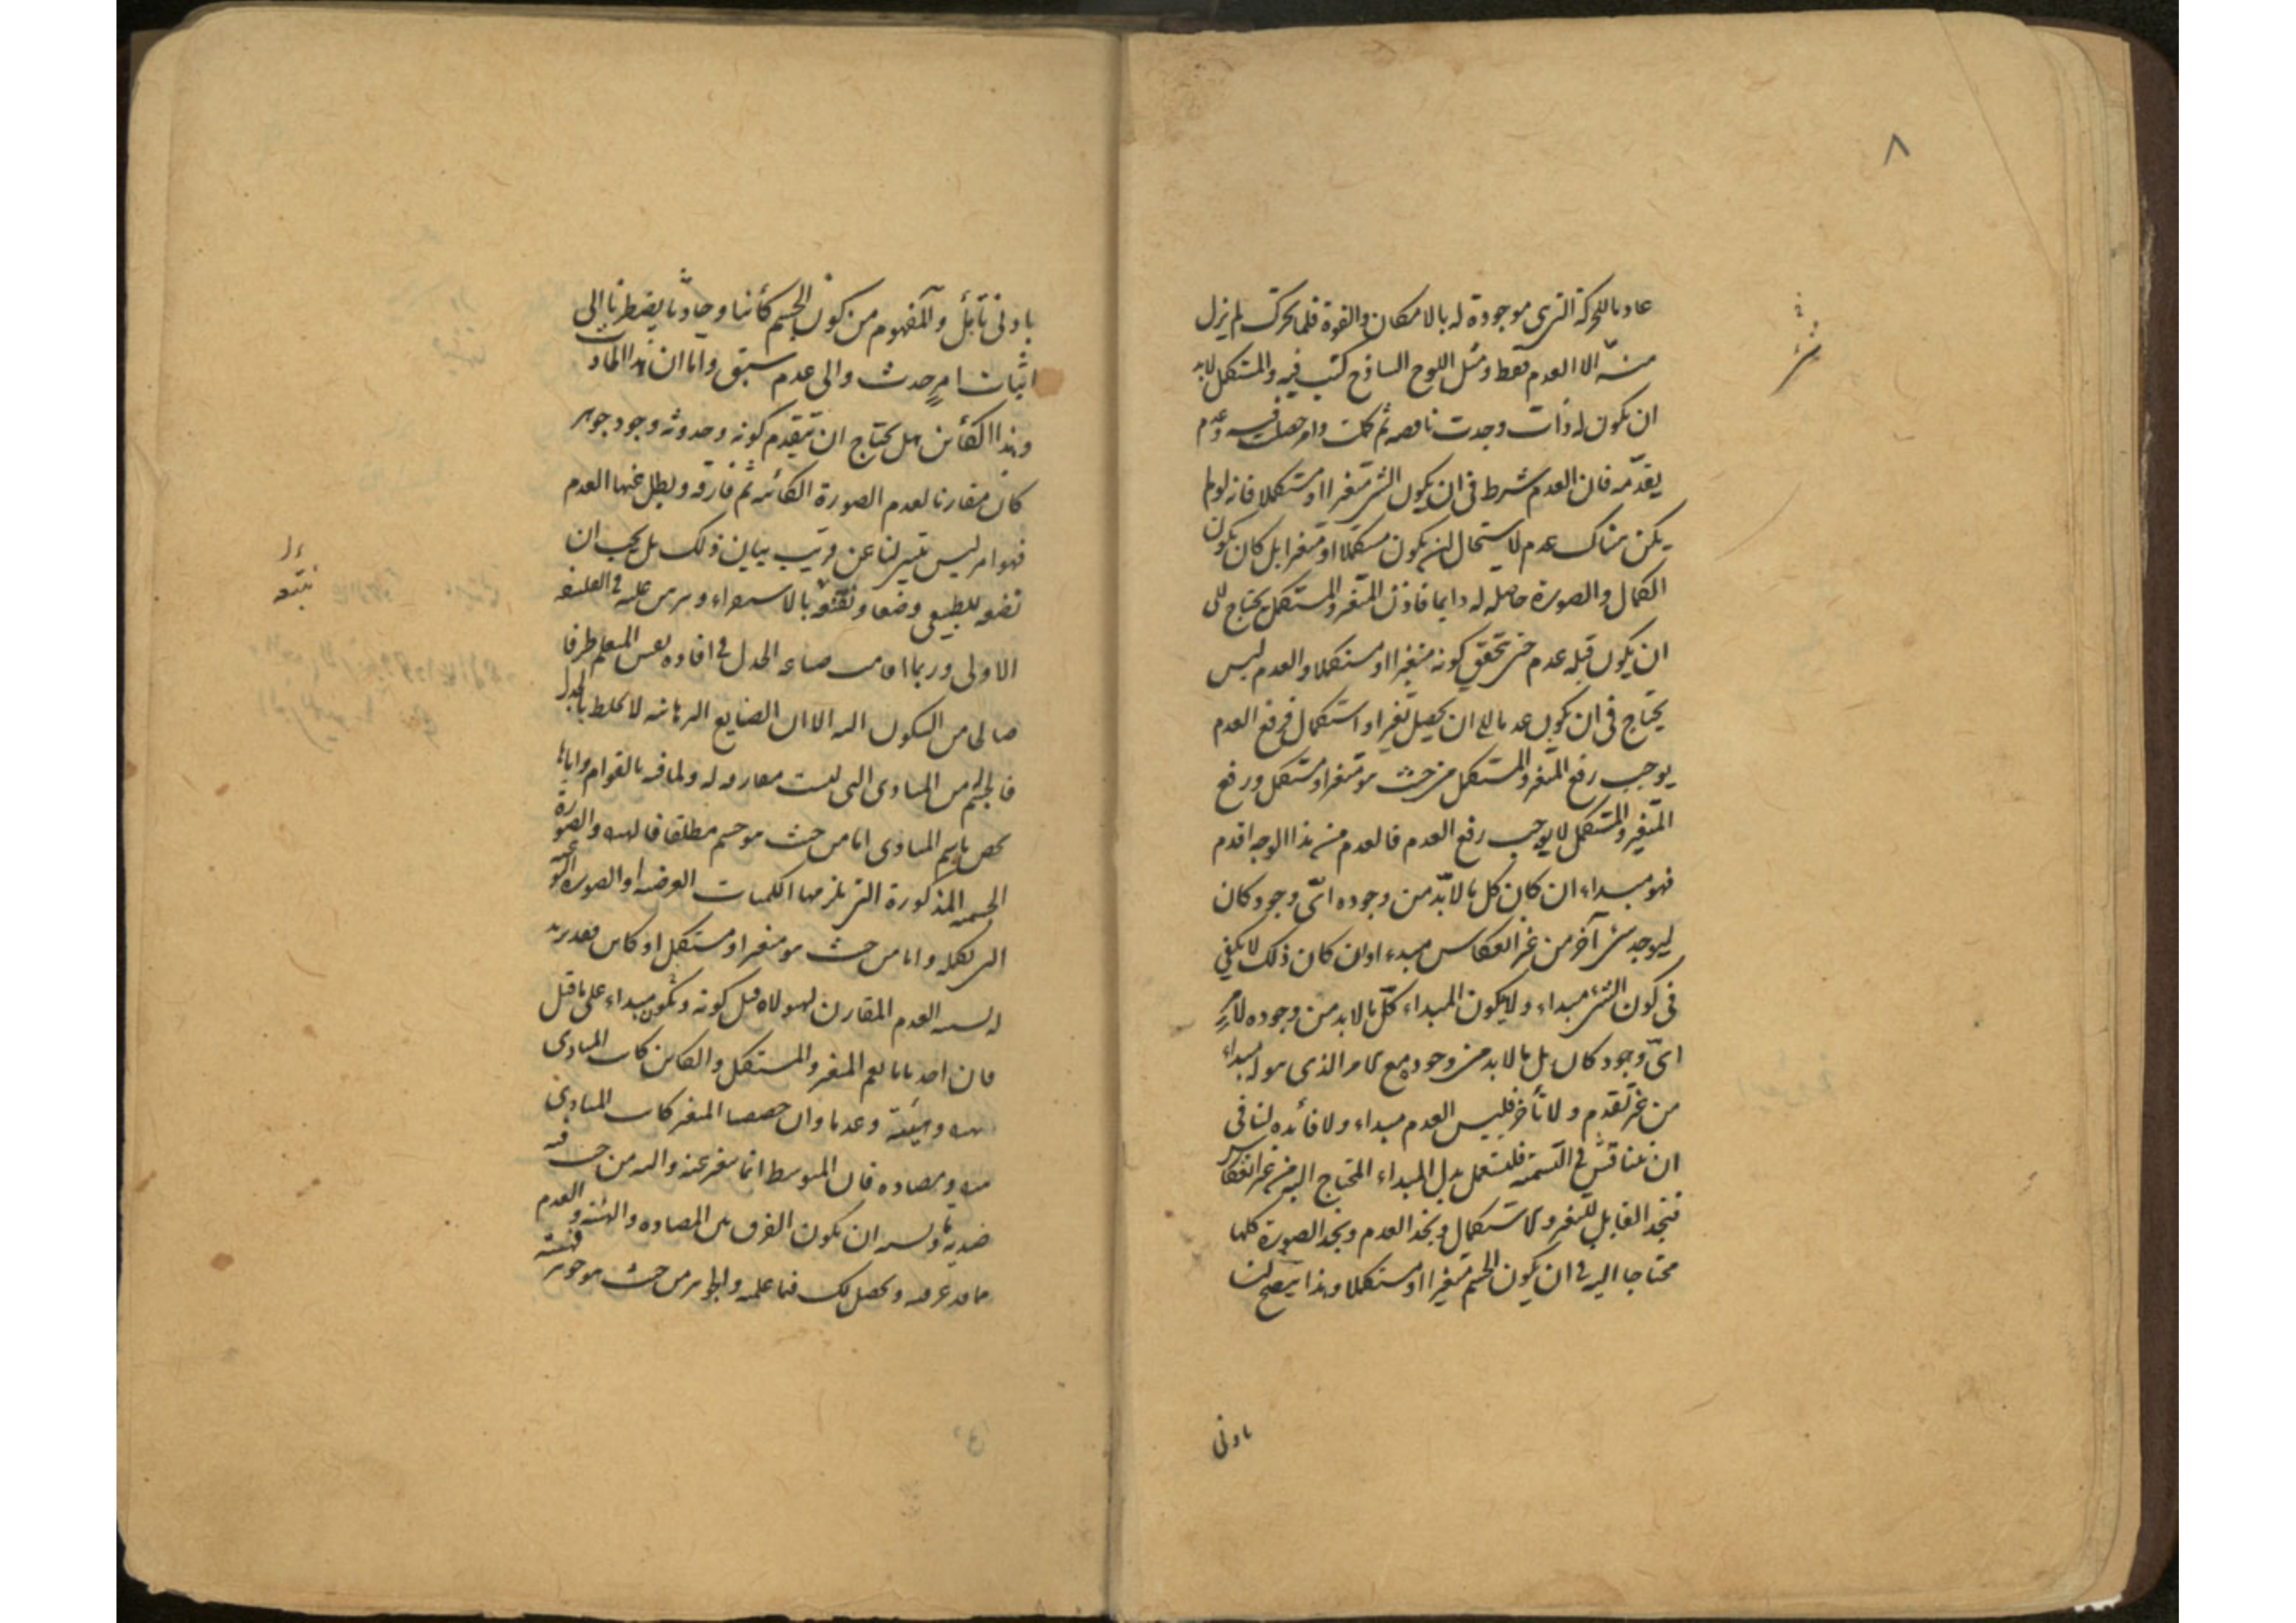 ٨
عادما للحركة التى هى موجودة له بالامكان والقوة فلما تحرك لم يزل
منه الا العدم فقط ومثل اللوح الساذج كتب فيه والمستكمل لابد
ان يكون له ذات وجدت ناقصه ثم كملت وامر حصلت فيه وعدم
يقدّمه فان العدم شرط فى ان يكون الشئ متغيرا او مستكملا فانه لو لم
يكن هناك عدم لاستحال ان يكون مستكملا او متغيرا بل كان يكون
الكمال والصورة حاصله له دايما فاذن المتغير والمستكمل يحتاج الى
ان يكون قبله عدم حتى تحقق كونه متغيرا او مستكملا والعدم ليس
يحتاج فى ان يكون عدما الى ان يحصل تغير او استكمال فرفع العدم
يوجب رفع المتغير والمستكمل من حيث هو متغير او مستكمل ورفع
المتغير والمستكمل لا يوجب رفع العدم فالعدم من هذا الوجه اقدم
فهو مبداء ان كان كل ما لابدّ من وجوده اىّ وجود كان
ليوجد شئ آخر من غير انعكاس مبدء اوان كان ذلك لا يكفى
فى كون الشئ مبداء ولا يكون المبداء كلّ ما لابد من وجوده لامرٍ
اىّ وجود كان بل ما لابد من وجوده مع الامر الذى هو له مبداء
من غير تقدم ولا تأخر فليس العدم مبداء ولا فائده لنا فى
ان نناقش فى التسمية فلنستعمل بدل المبداء المحتاج اليه من غير انعكاس
فنجد القابل للتغير والاستكمال ونجد العدم ونجد الصورة كلها
محتاجا اليه فى ان يكون الجسم متغيرا او مستكملا وهذا يتضح لنا
بادنى
بادنى تأمّل والمفهوم من كون الجسم كائنا وحادثا يضطرنا الى
اثبات امرٍ حدث والى عدم سبق واما ان هذا الحادث
وهذا الكائن هل يحتاج ان يتقدم كونه وحدوثه وجود جوهر
كان مقارنا لعدم الصورة الكائنه ثم فارقه وبطل عنها العدم
فهو امر ليس يتيسر لنا عن قريب بيان ذلك بل يجب ان
نضعه للطبيعى وضعا ونقنعه بالاستقراء ونبرهن عليه فى الفلسفه
الاولى وربما قامت صناعه الجدل فى افاده نفس المتعلم طرفا
صالحا من السكون اليه الا ان الصنايع البرهانيه لا تخلط بالجدل
فالجسم من المبادى التى ليست مفارقه له ولما فيه بالقوام واياها
نخص باسم المبادى اما من حيث هو جسم مطلقا فالهيولى والصورة
الجسميه المذكورة التى يلزمها الكميات العرضيه او الصوره النوعيه
التى تكمله واما من حيث هو متغير او مستكمل او كاين فقد زيد
له نسبه العدم المقارن لهيولاه قبل كونه ويكون مبداء على ما قيل
فان اخذنا ما يعم المتغير والمستكمل والكاين كانت المبادى
هيولى وهيئة وعدما وان خصصنا المتغير كانت المبادى
هيولى ومضاده فان المتوسط انما يتغير عنه واليه من حيث فيه
ضديه ما ويشبه ان يكون الفرق بين المضاده والهيئه والعدم
مما قد عرفته ويحصل لك فيما علمته والجوهر من حيث هو جوهر